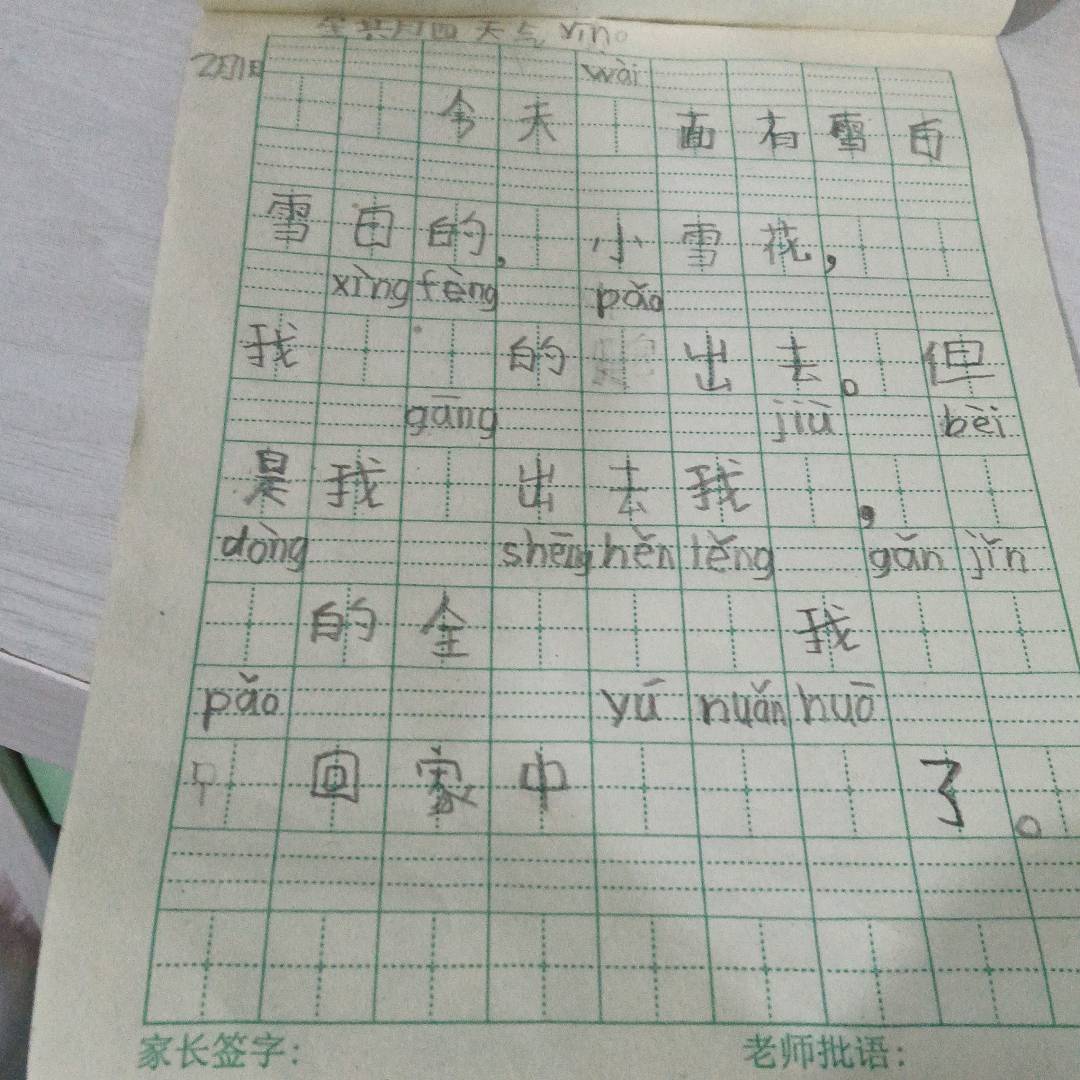 四 天气 yīn。
wài
今天 面有雪白
雪白的,小雪花,
xìng fèng pǎo
我 的 出去。但
gāng jiù bèi
是我 出去我 ,
dòng shēng hěn těng gǎn jǐn
的全 我
pǎo yú nuǎn huō
回家中 了。
家长签字: 老师批语: